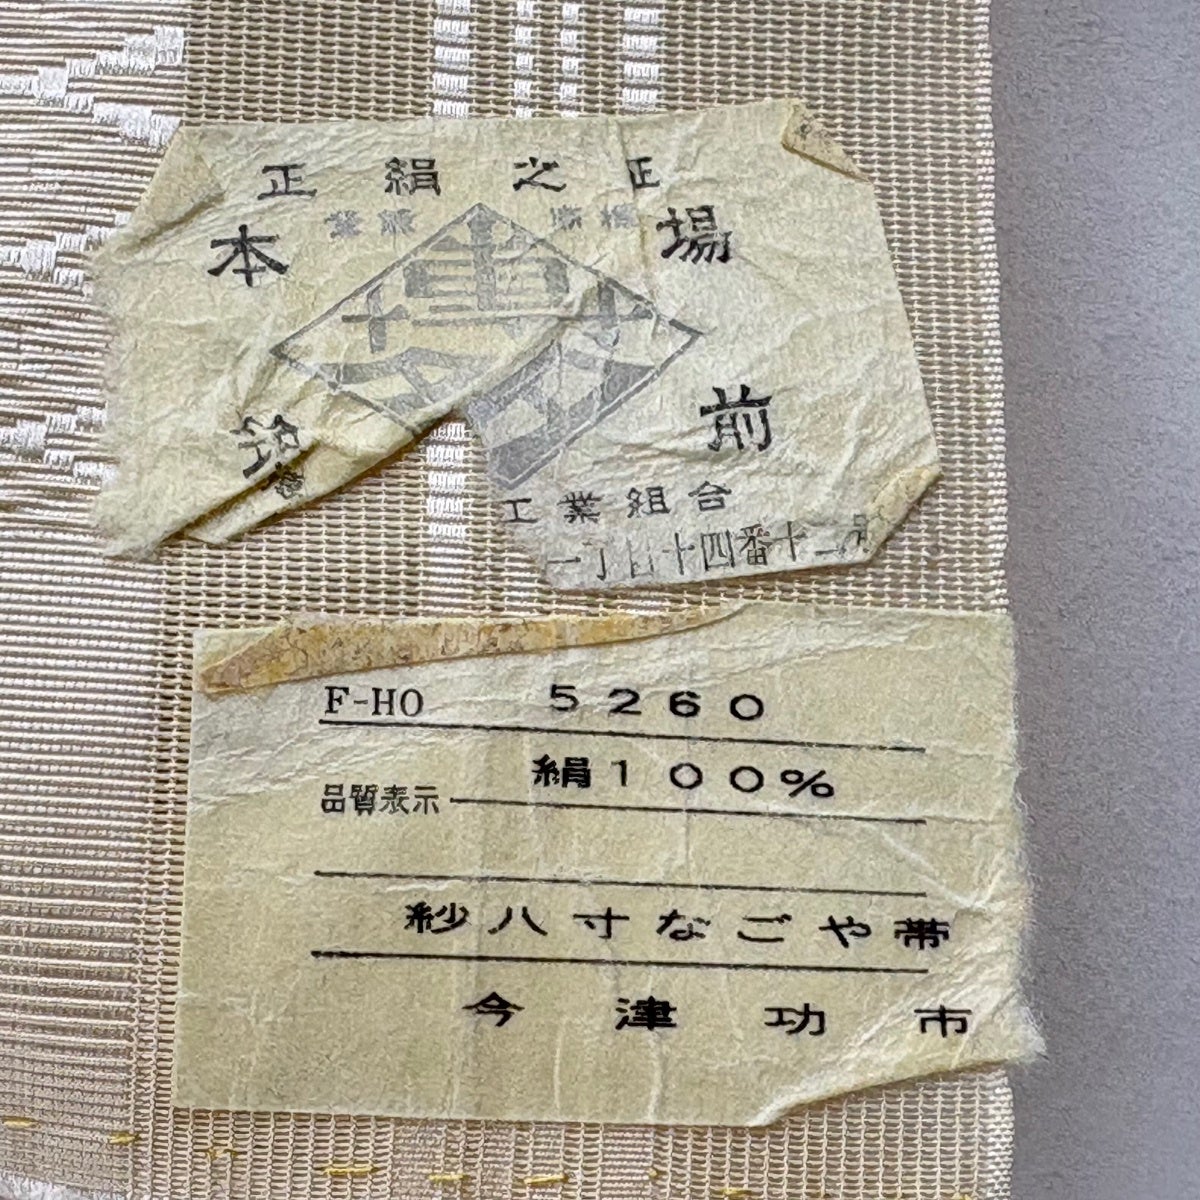 正絹之正
登録 商標
本場
筑前
工業組合
一丁目十四番十二号
F-HO 5260
絹100%
品質表示
紗八寸なごや帯
今津功市